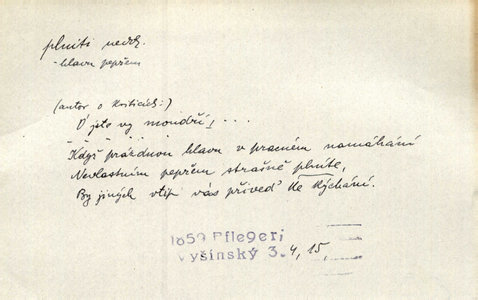 plniti nedk.
- hlavu pepřem
(autor o kriticích:)
Ó jste vy moudří! . . .
Když prázdnou hlavu v pracném namáhání
Nevlastním pepřem strašně plníte,
By jiných vtip vás přived' ke kýchání.
1859 Pfleger:
Vyšínský 3. 4, 15,